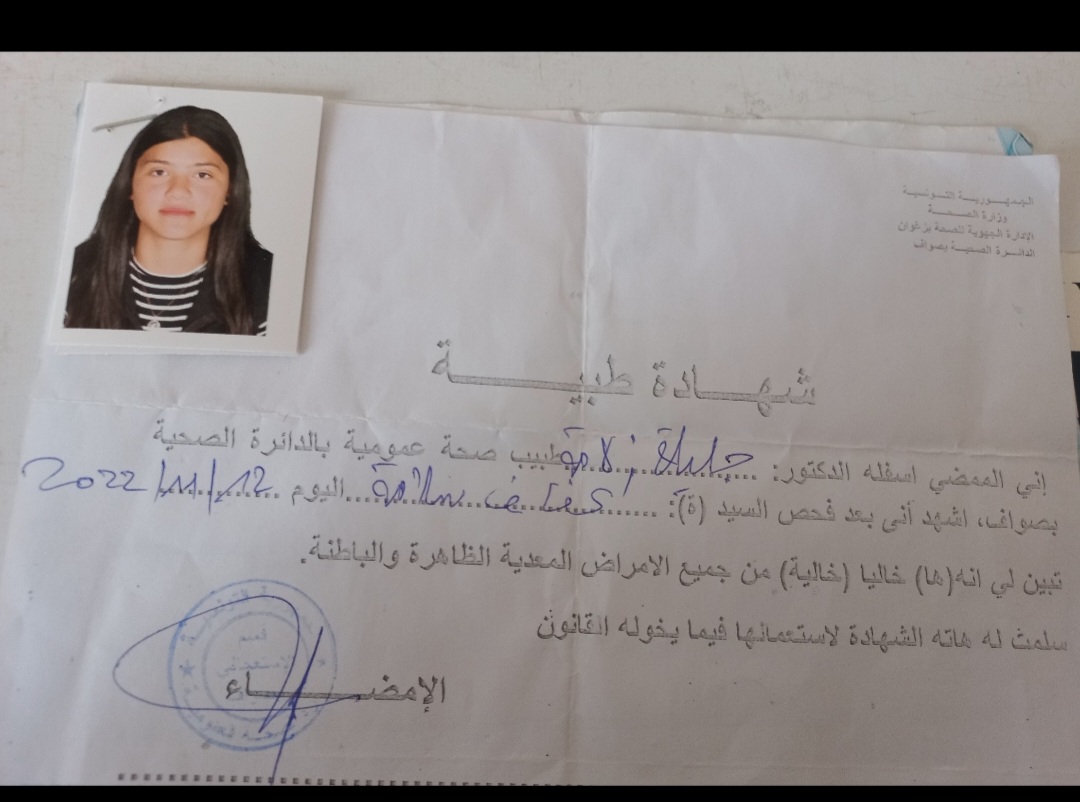 الجمهورية التونسية
وزارة الصحة
الادارة الجهوية للصحة بزغوان
الدائرة الصحية بصواف
شهادة طبية
إني الممضي اسفله الدكتور: ............ طبيب صحة عمومية بالدائرة الصحية
بصواف، اشهد أنى بعد فحص السيد (ة): ............ اليوم 12/11/2022
تبين لي انه(ها) خاليا (خالية) من جميع الامراض المعدية الظاهرة والباطنة.
سلمت له هاته الشهادة لاستعمالها فيما يخوله القانون
الإمضاء
قسم
الاستعجالي